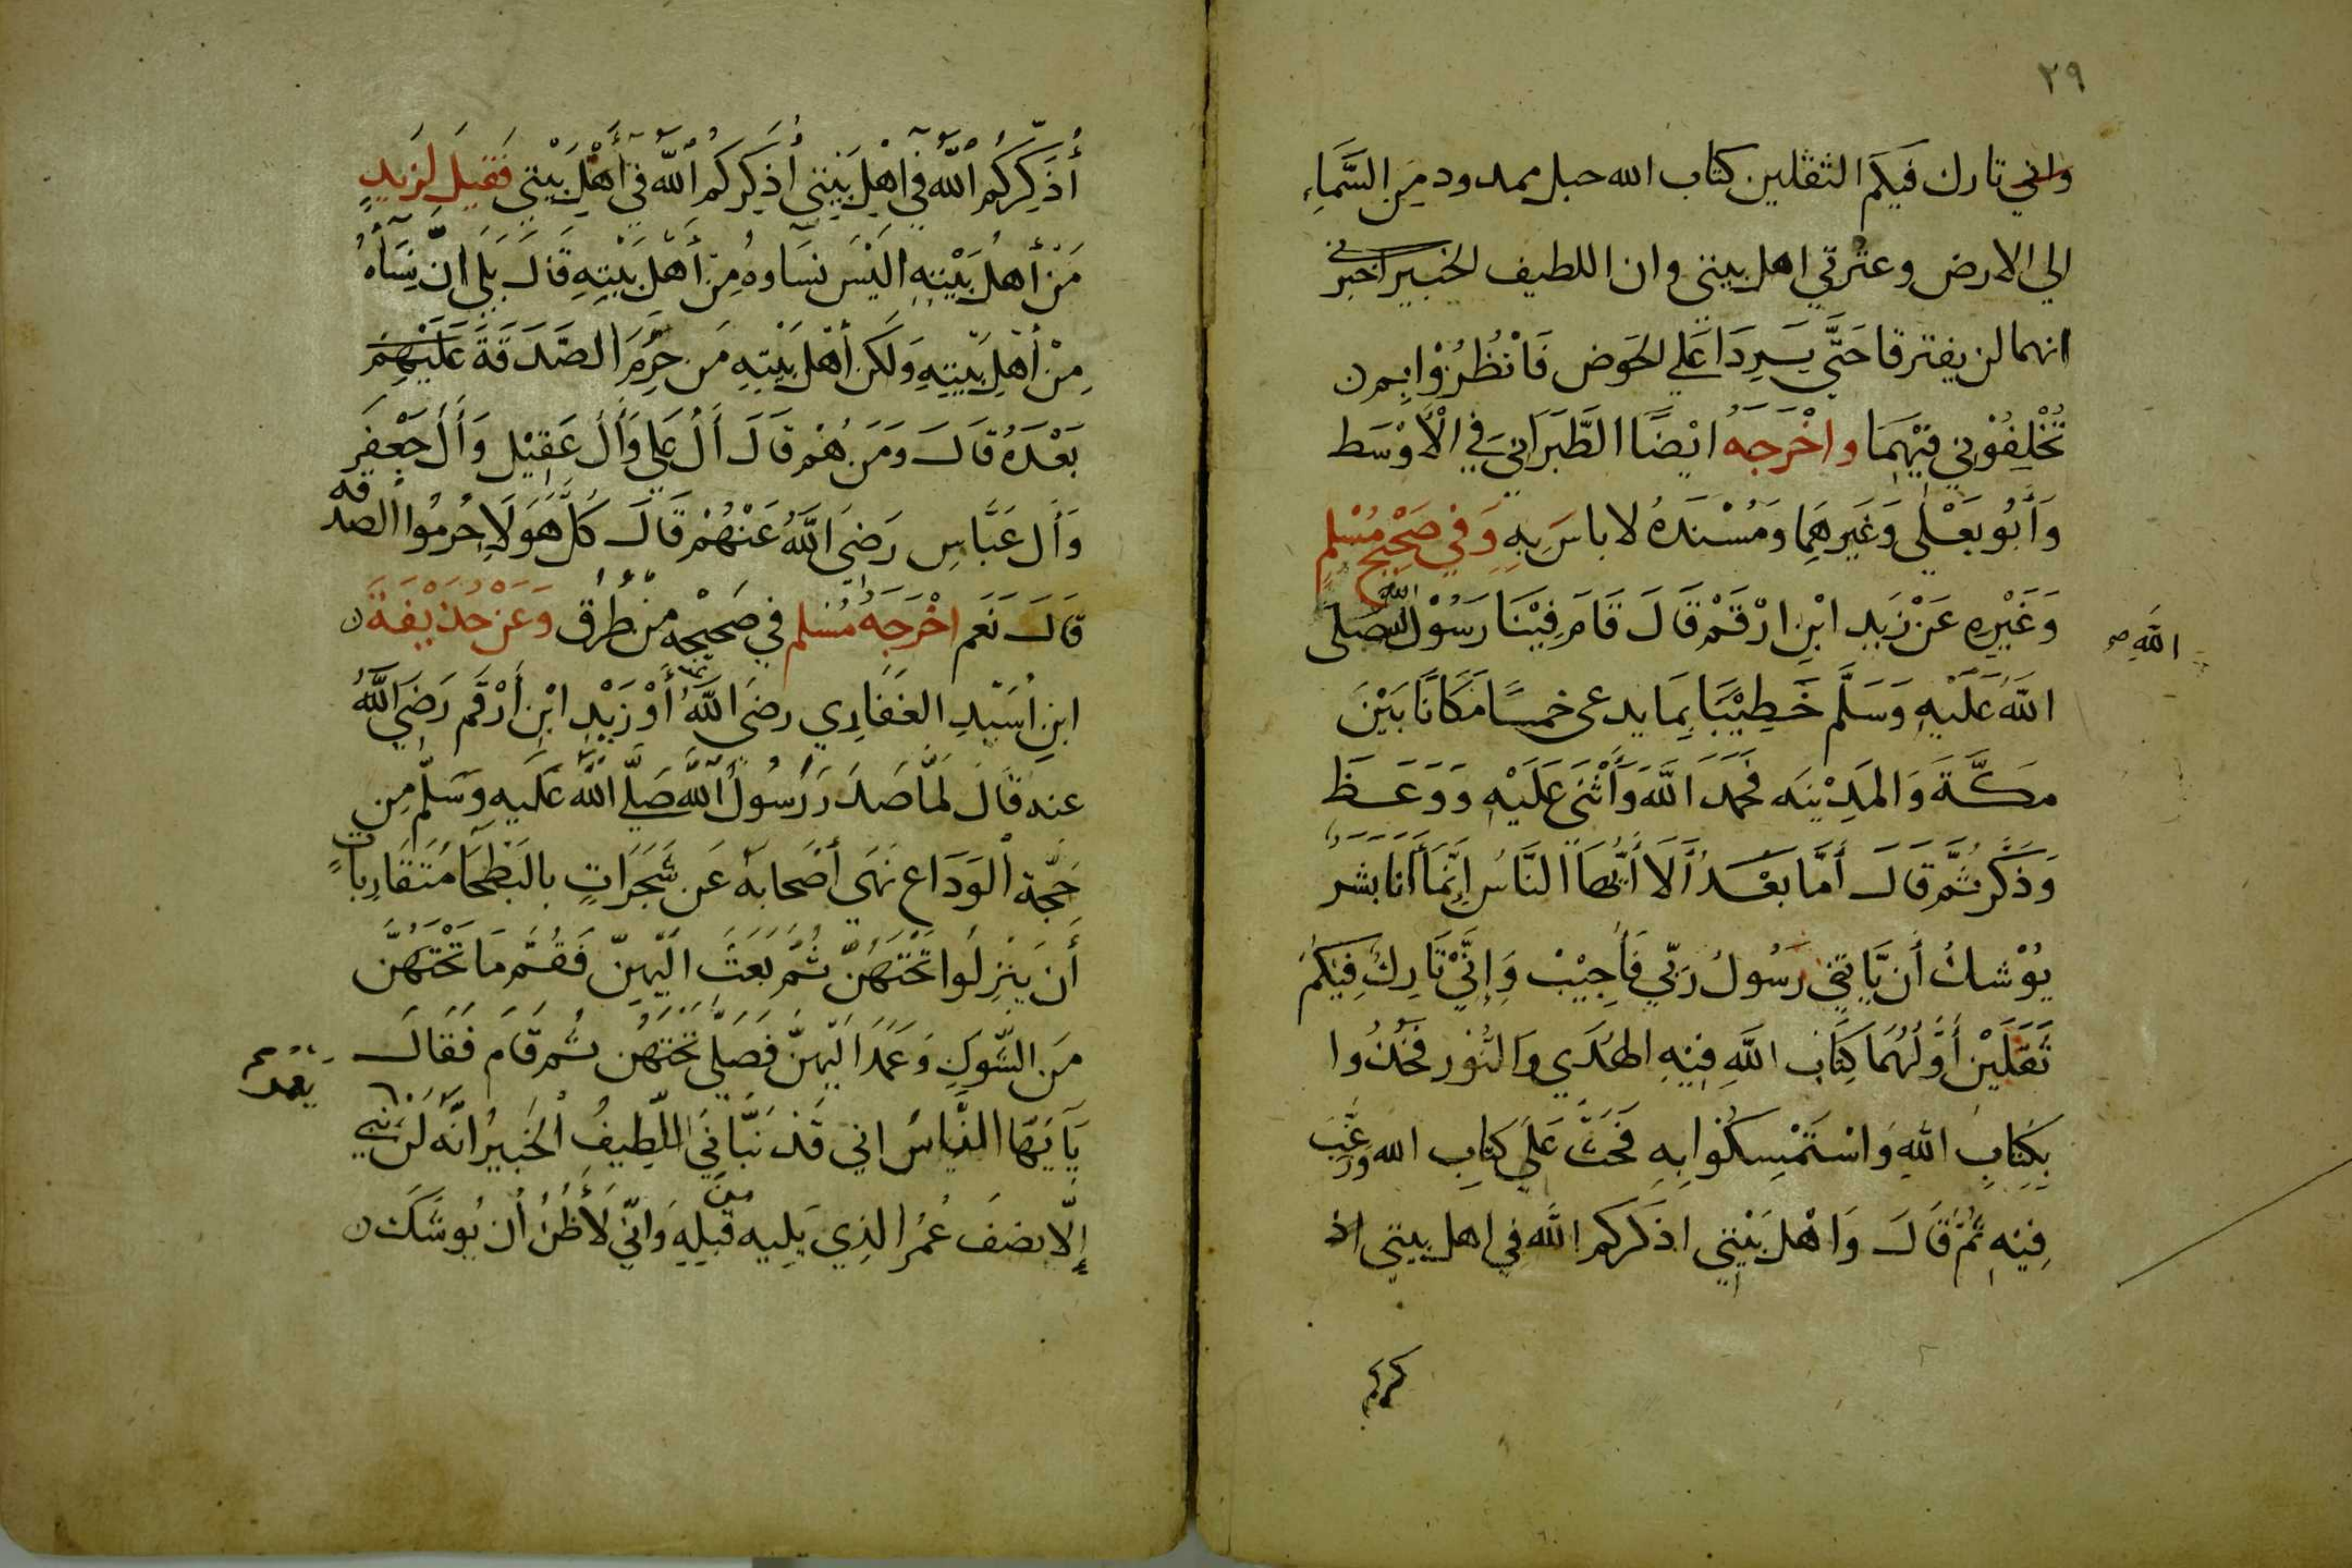 ٢٩
واني تارك فيكم الثقلين كتاب الله حبل ممدود من السماء
الي الارض وعترتي اهل بيتي وان اللطيف الخبير اخبرني
انهما لن يفترقا حَتَّي يَرِدَا عَلي الحَوض فَانْظُرُوْا بِم
تُخْلِفُوْنِي فِيْهِمَا واخْرَجَهُ ايْضًا الطَّبَرَانِي فِي الْأَوْسَط
وَأَبُو يَعْلي وَغَيرهِمَا وَمُسْنَدهُ لا باسَ بِهِ وَفِي صَحِيحِ مُسْلِمٍ
وَغَيْرِهِ عَنْ زَيد ابْنِ ارْقَمْ قَالَ قَامَ فِيْنَا رَسُوْلُ الله صَلَى
الله صح
اللهُ عَلَيْهِ وَسَلَّم خَطِيْبًا بِمَا يدعى خمسًا مَكَانًا بَيْنَ
مَكَّةَ وَالمَدِيْنَه فَحَمَدَ اللَّهَ وَأَثْنَى عَلَيْهِ وَوَعَظَ
وَذَكَّرَ ثُمَّ قَالَ أَمَّا بَعْدُ أَلَا أَيُّهَا النَّاسُ إِنَّمَا أَنَا بَشَرٌ
يُوْشكُ أن يَّاتِيَني رَسُولُ رَبِّي فَأُجِيْبْ وَإِنِّيْ تَارِكُ فِيكمْ
ثَقَلَيْن أَوَّلُهُمَا كِتَاب اللَّهِ فِيْهِ الهُدَي وَالنُّوْر فَخُذُوا
بِكِتَابِ اللهِ وَاسْتَمْسِكُوا بِهِ فَحَثَّ عَلَي كِتَابِ الله وَرَغَّبَ
فِيْهِ ثُمَّ قَالَ وَاهْل بَيْتِي اذكركم اللَّه فِي اهل بيتي اذ
كركم
أُذَكِّرُكُم اللَّه فِي اهْلِ بَيْتِي أُذَكِرُكُمُ اللَّه فِي أَهْلِ بَيْتِي فَقِيلَ لِزَيدٍ
مَنْ أَهلُ بَيْتِهِ اليْسَ نِسَاوهُ مِنْ أَهْلِ بَيْتِهِ قَالَ بَلَي إِنَّ نِسَاءَهُ
مِنْ أَهْلِ بَيْتِهِ وَلَكن أَهْلَ بَيْتِهِ مَن حُرِمَ الصَّدَقَةَ عَلَيْهِمْ
بَعْدَهُ قَالَ وَمَن هُمْ قَالَ أَلُ عَلِي وَأَلُ عَقِيْل وَأَلُ جَعْفَر
وَأَل عَبَّاسِ رَضيَ اللَّهُ عَنْهُمْ قَالَ كُلُّ هَوَلَاِ حُرمُوا الصدقة
قَالَ نَعَم اخْرَجَهُ مُسْلم فِي صَحيْحِهِ من طُرقٍ وَعَنْ حُذَيْفَةَ
ابنِ اُسَيْدِ الغفَارِي رضيَ اللَّهُ عنه أَوْ زَيْدِ ابْنِ أَرْقَم رَضَيَ اللَّهُ
عنه قَالَ لَمَّا صَدَرَ رَسُولُ اللَّه صَلَّي اللَّه عَلَيهِ وَسَلَّم مِن
حَجَّة الْوَدَاع نَهَي أَصْحابَهُ عَن شَجَرَاتٍ بالبَطحَا مُتَقَارِبَاتٍ
أَن يَنْزِلُوا تَحْتَهُنَّ ثُمَّ بَعَثَ الَيْهنّ فَقُمَّ مَا تَحْتَهُنَّ
مَن الشَّوَكِ وَعَمَدَ الَيْهنَّ فَصَلَّي تَحْتَهُن ثُم قَامَ فَقَالَ
يَا أيُهَا النَّاسُ اني قَدْ نَبَّانَيَ اللَّطِيفُ الخَبيرُ انَّه لَنْ نبي
يعمر
إِلّا نصفَ عُمُر الذِي يَلِيه مِن قَبِلِهِ وَانّي لَأَظُنُ أن يُوشَكَ